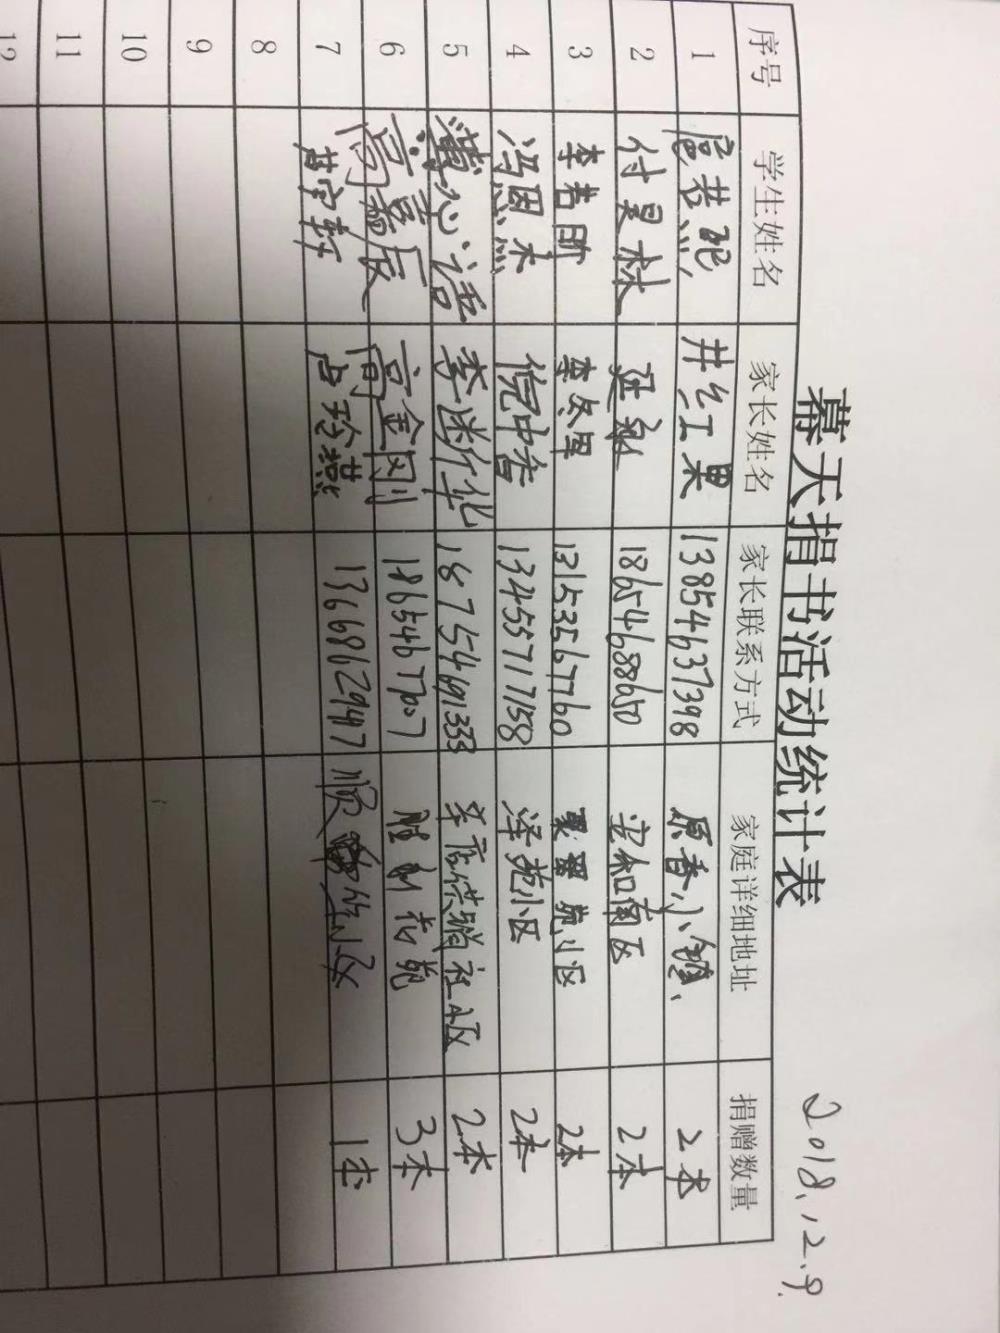 幕天捐书活动统计表
2018.12.9.
序号 学生姓名 家长姓名 家长联系方式 家庭详细地址 捐赠数量
1 扈若 井红果 13854637398 原香小镇 2本
2 付昊林 延 18654688650 安和南区 2本
3 李若 李冬 13153567760 苑小区 2本
4 冯恩 倪中香 13455717158 泽苑小区 2本
5 心语 李 华 18754691333 辛店供销社A区 2本
6 高嘉辰 高金刚 18654677007 胜利 苑 3本
7 轩 占玲燕 13668629947 顺 小区 1本
8
9
10
11
12